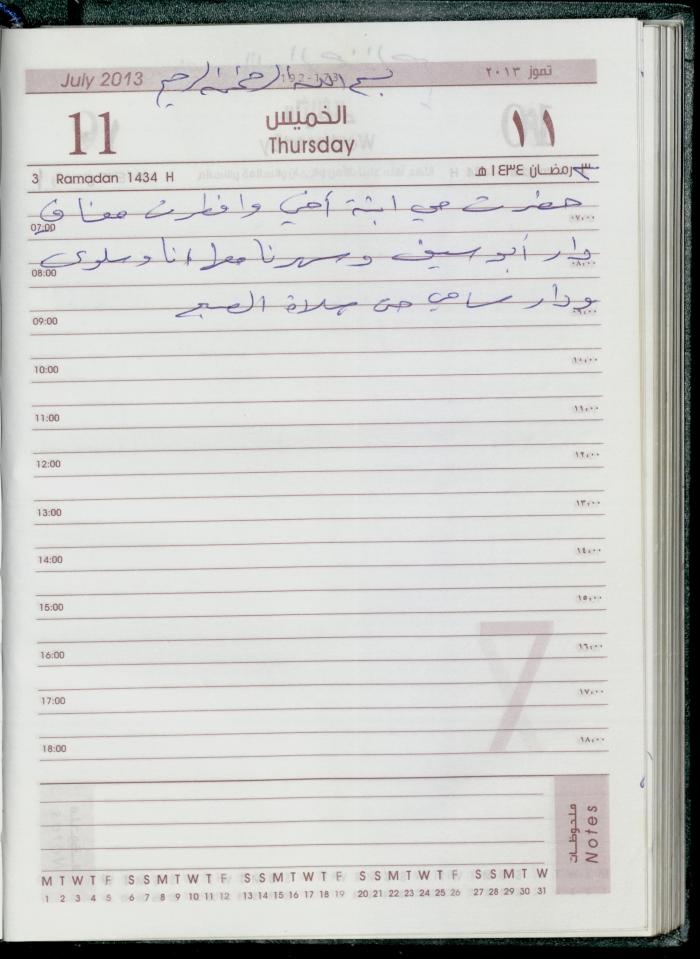 July 2013 بسم الله الرحمن الرحيم تموز ٢٠١٣
11 الخميس ١١
Thursday
3 Ramadan 1434 H ٣ رمضان ١٤٣٤ هـ
حضرت مي ابنة أخي وافطرت معنا في
07:00 ٠٧،٠٠
دار أبو سيف وسهرنا معا انا وسلوى
08:00 ٠٨،٠٠
ودار سامي حتى صلاة الصبح
09:00 ٠٩،٠٠
10:00 ١٠،٠٠
11:00 ١١،٠٠
12:00 ١٢،٠٠
13:00 ١٣،٠٠
14:00 ١٤،٠٠
15:00 ١٥،٠٠
16:00 ١٦،٠٠
17:00 ١٧،٠٠
18:00 ١٨،٠٠
7
ملحوظات
Notes
M T W T F S S M T W T F S S M T W T F S S M T W T F S S M T W
1 2 3 4 5 6 7 8 9 10 11 12 13 14 15 16 17 18 19 20 21 22 23 24 25 26 27 28 29 30 31